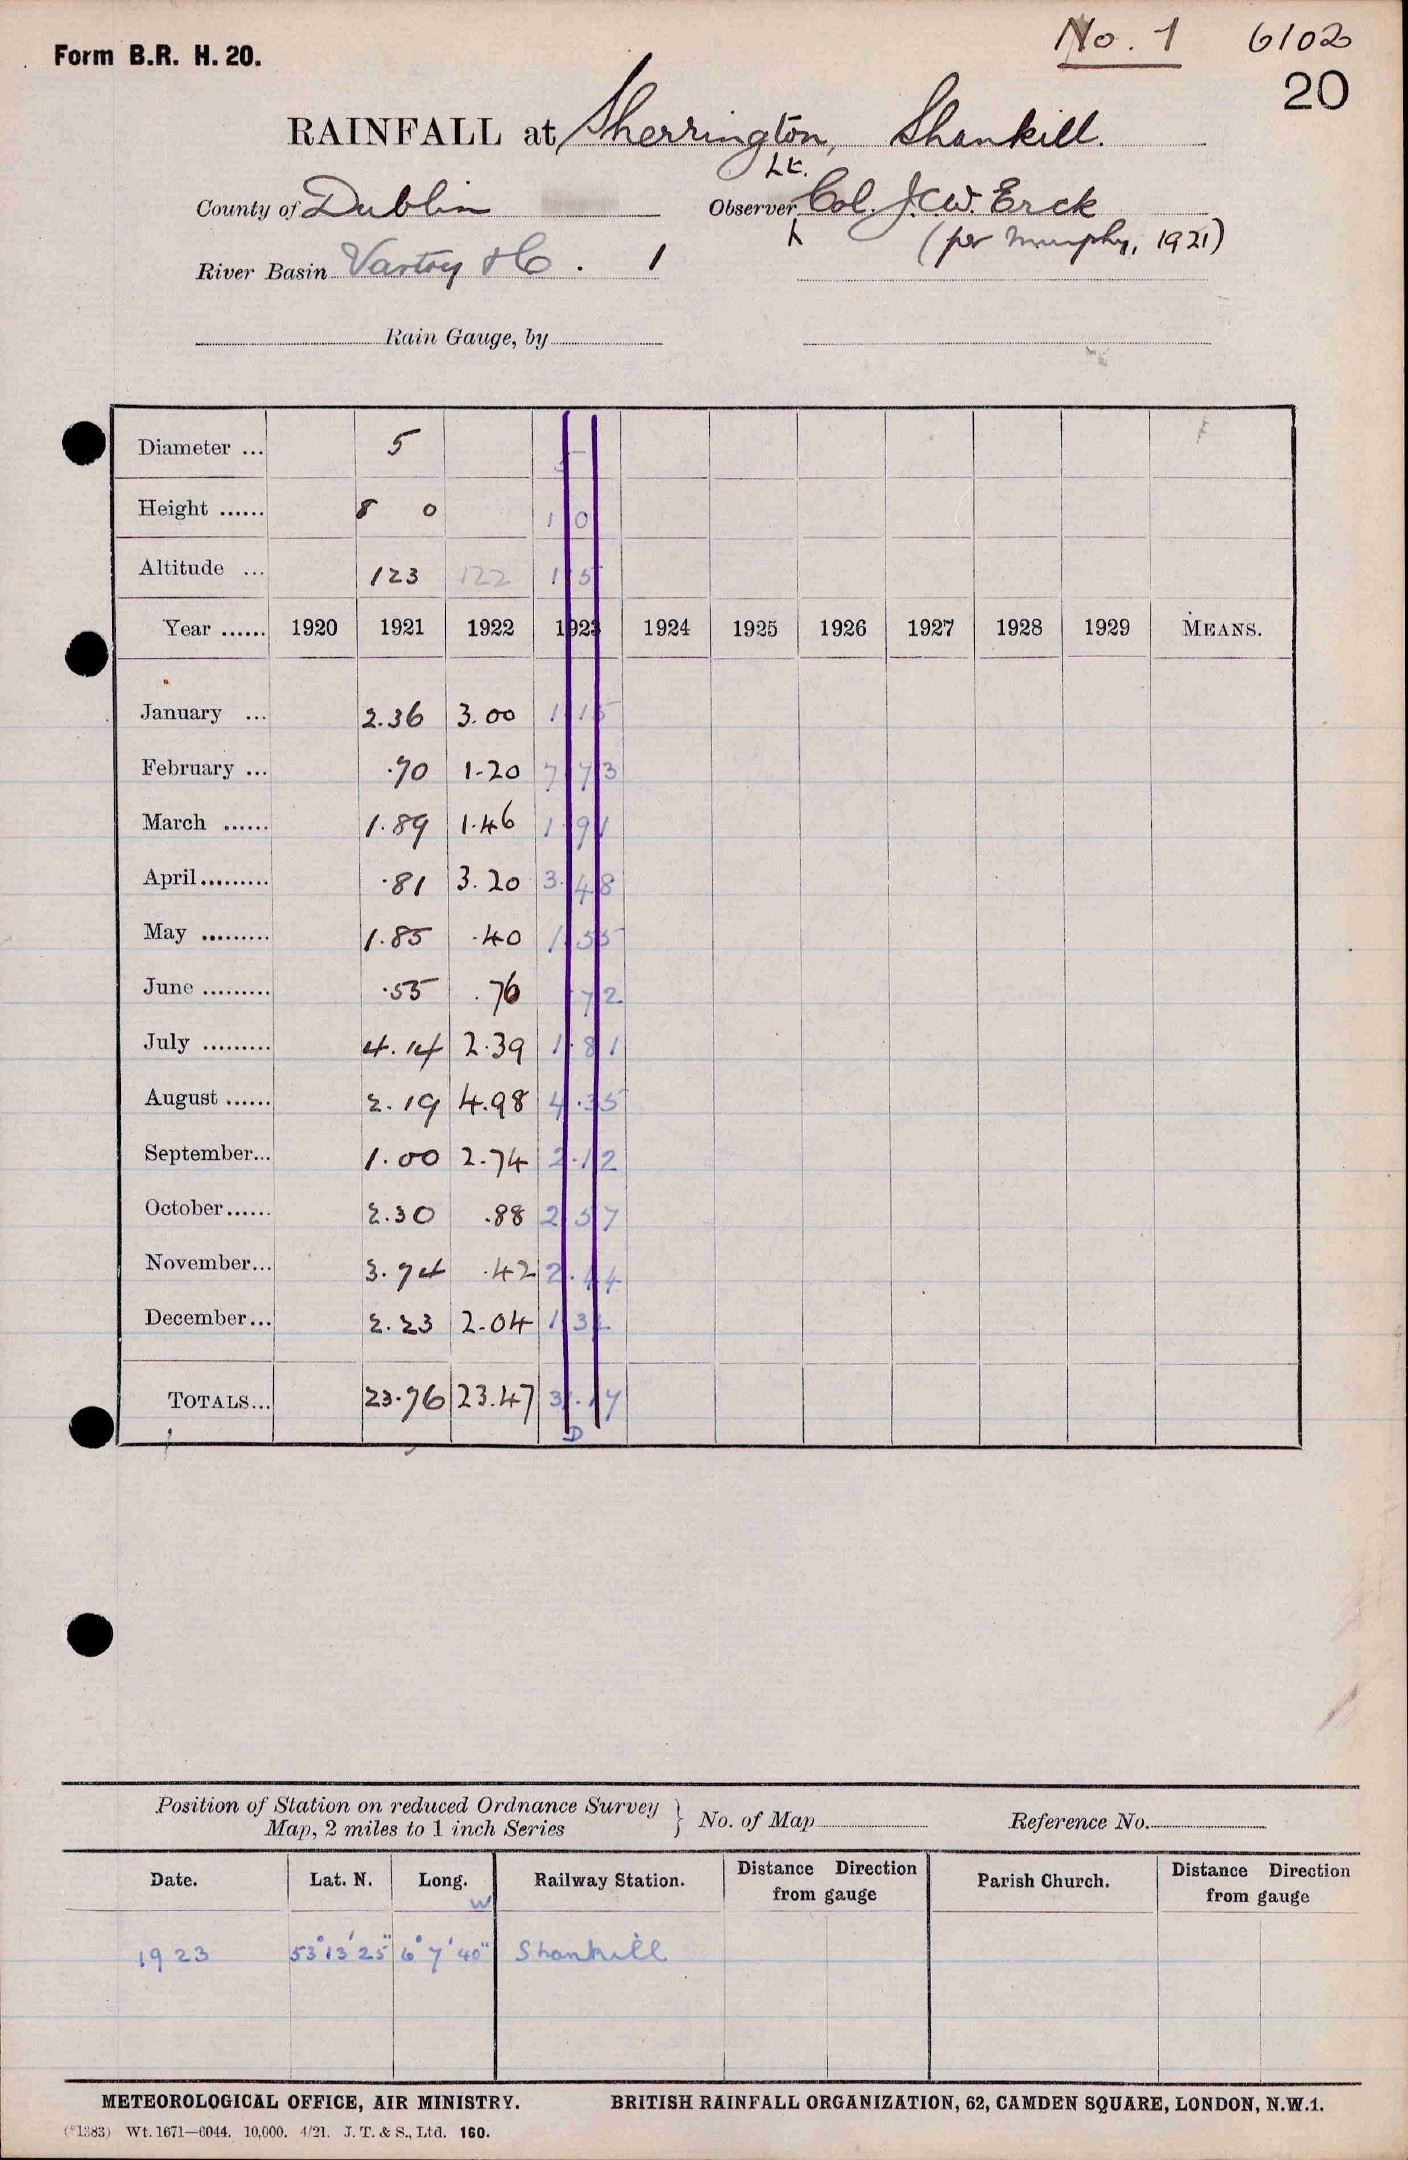 No. 1 6102
Form B.R. H. 20.
20
RAINFALL at Sherrington, Shankill.
Lt.
County of Dublin Observer Col. J.C.W. Erck
(per Murphy, 1921)
River Basin Vartry &c. 1
Rain Gauge, by
Diameter ... 5 5
Height ...... 8 0 1 0
Altitude ... 123 122 115
Year ...... 1920 1921 1922 1923 1924 1925 1926 1927 1928 1929 MEANS.
January ... 2.36 3.00 1.15
February ... .70 1.20 7.73
March ...... 1.89 1.46 1.91
April ......... .81 3.20 3.48
May ......... 1.85 .40 1.55
June ......... .55 .76 .72
July ......... 4.14 2.39 1.81
August ...... 2.19 4.98 4.35
September... 1.00 2.74 2.12
October...... 2.30 .88 2.57
November... 3.74 .42 2.44
December... 2.23 2.04 1.32
TOTALS... 23.76 23.47
D
Position of Station on reduced Ordnance Survey
Map, 2 miles to 1 inch Series } No. of Map Reference No.
Date. Lat. N. Long. W Railway Station. Distance Direction from gauge Parish Church. Distance Direction from gauge
1923 53° 13' 25" 6° 7' 40" Shankill
METEOROLOGICAL OFFICE, AIR MINISTRY. BRITISH RAINFALL ORGANIZATION, 62, CAMDEN SQUARE, LONDON, N.W.1.
(*1383) Wt. 1671—6044. 10,000. 4/21. J. T. & S., Ltd. 160.